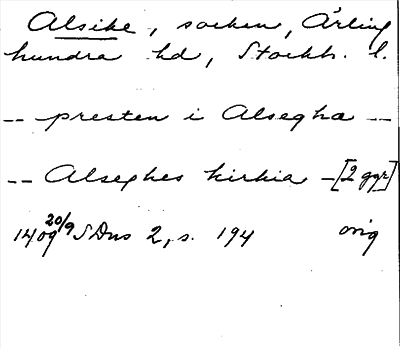 Alsike, socken, Ärling
hundra hd, Stockh. l.
-- presten i Alsegha --
-- Alseghes kirkia -[2 ggr]
1409 20/9 SDns 2, s. 194 orig